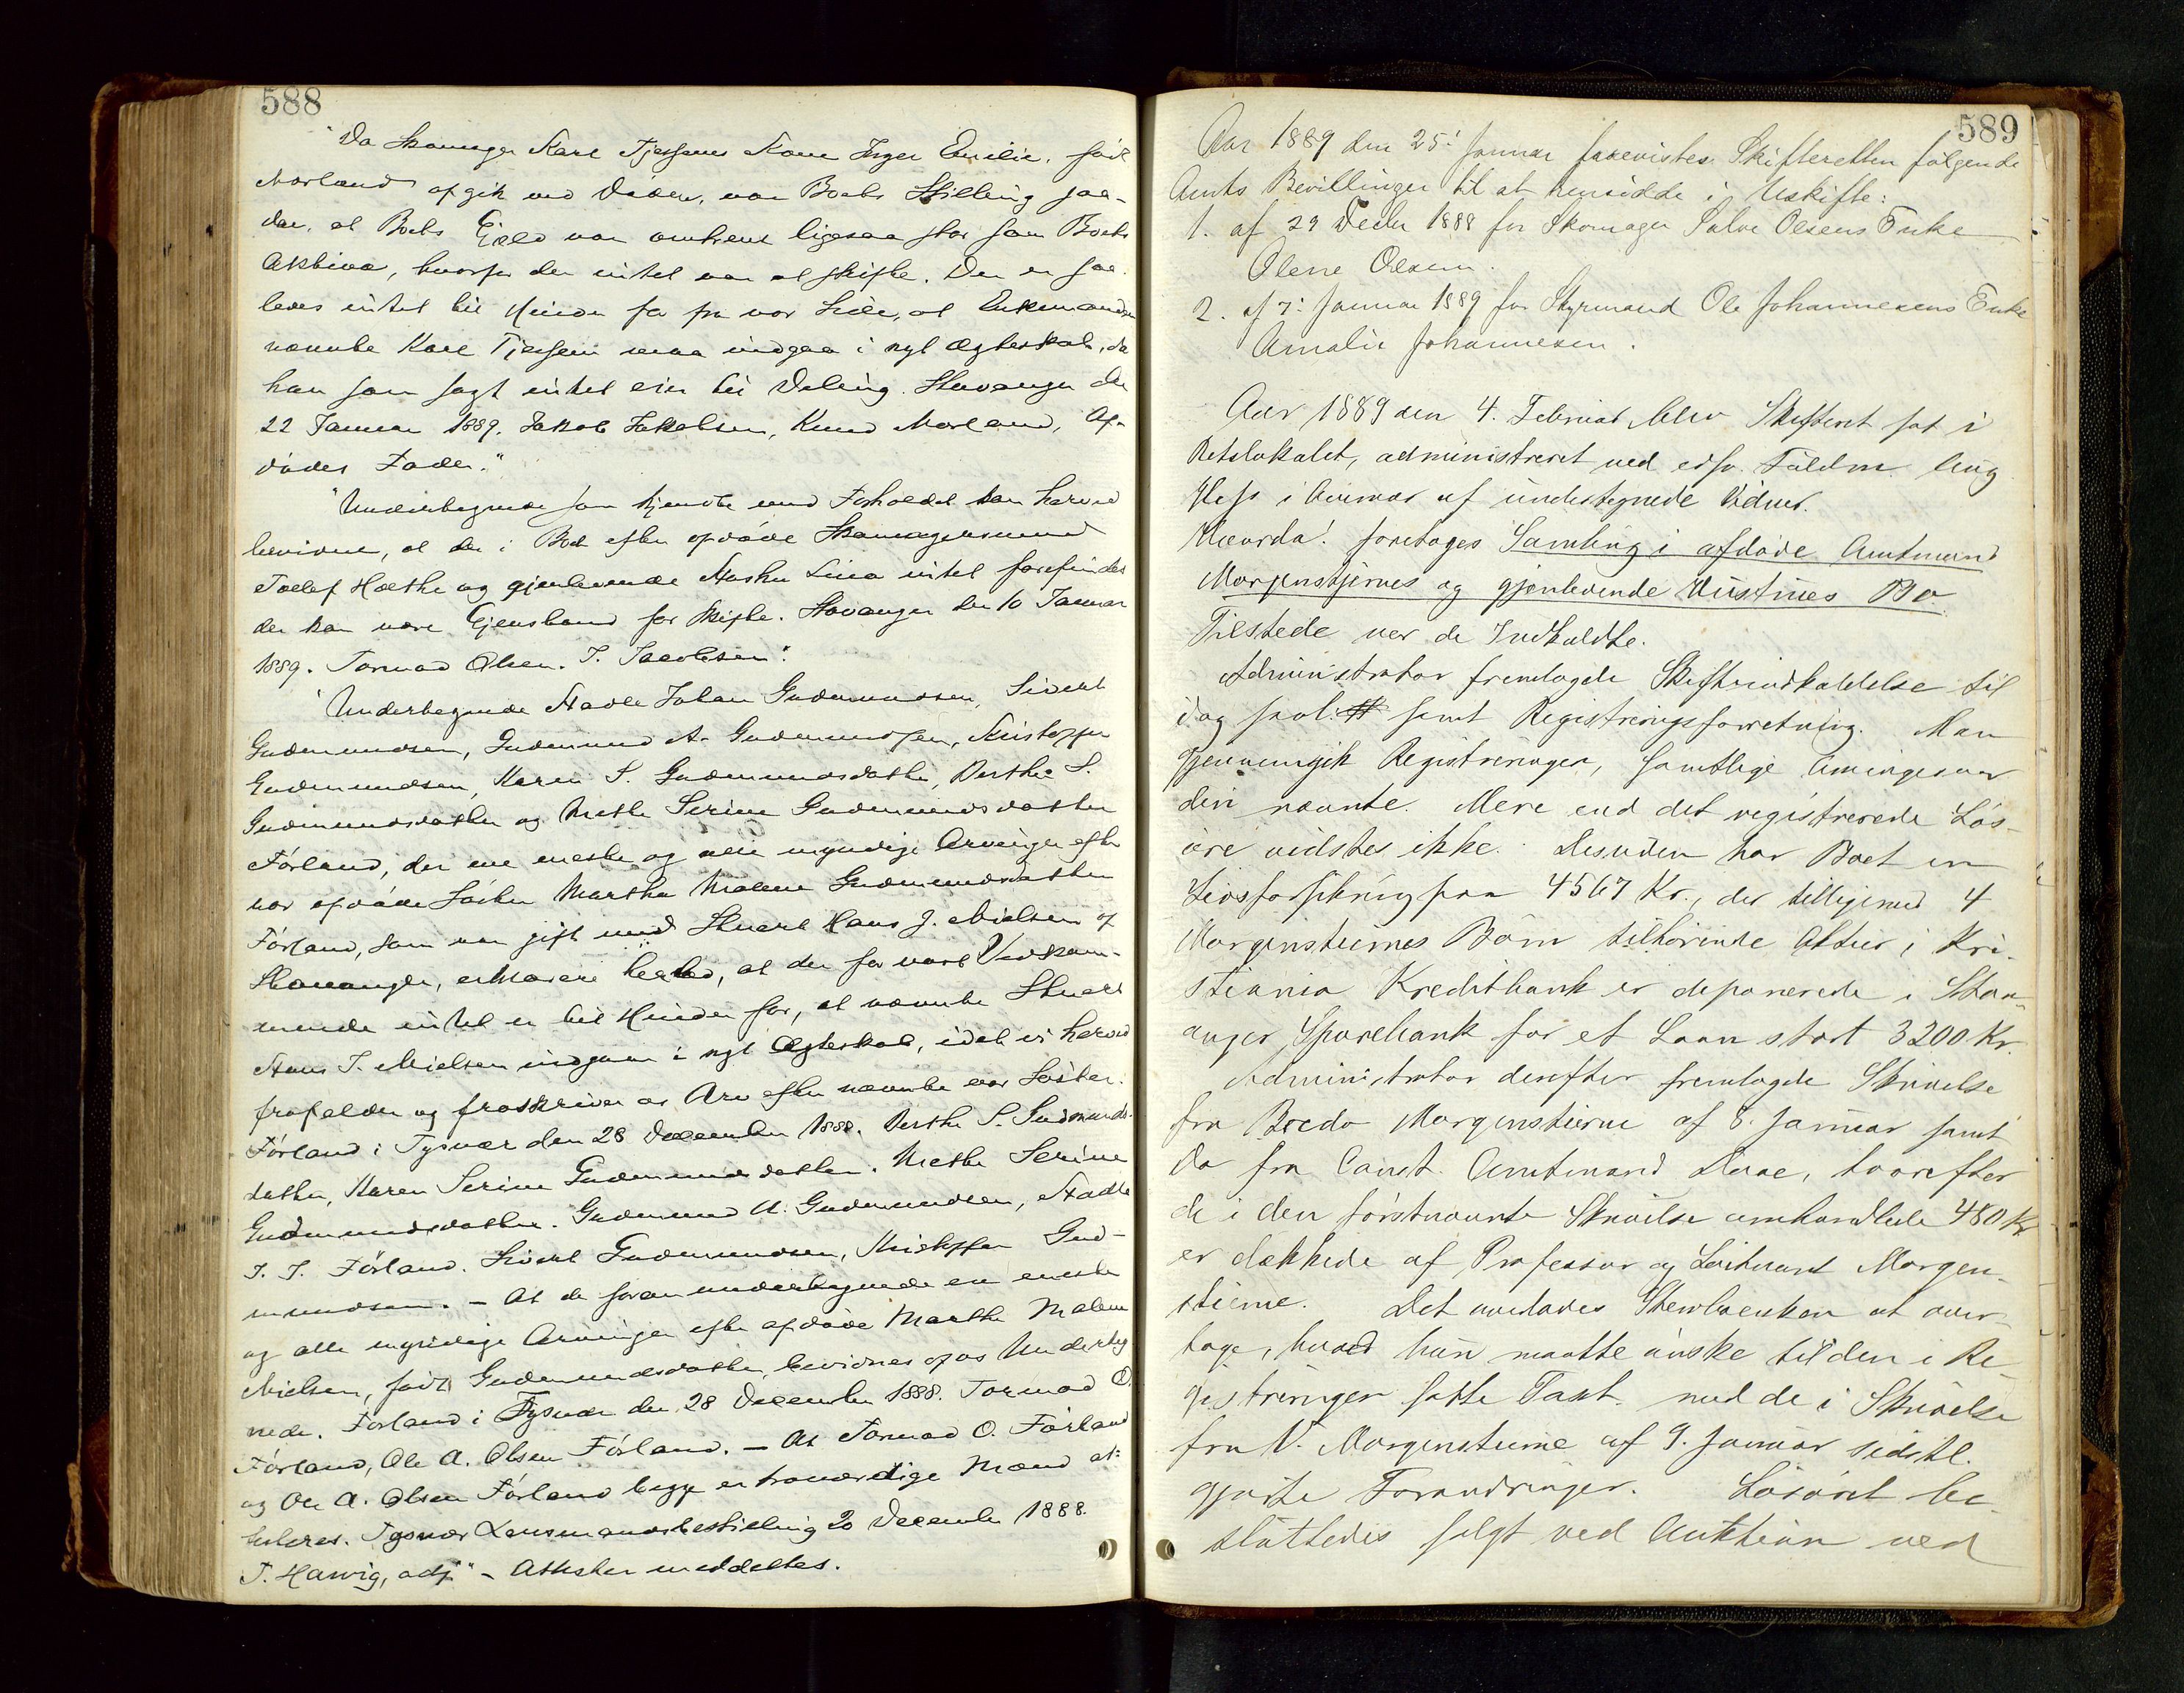 588
"Da Skomager Karl Tjersens Kone Inger Emilie, født
Mørland afgik ved Døden, var Boets Stilling saa-
dan, at Boets Gjæld var omtrent ligesaa stor som Boets
Aktiva, hvorfor der intet var at skifte. Der er saa-
ledes intet til Hinder for fra vor Side, at Enkemanden
nævnte Karl Tjersen maa indgaa i nyt Ægteskab, da
han som sagt intet eier til Deling. Stavanger den
22 Januar 1889. Jakob Jakobsen, Knud Mørland, Af-
dødes Fader."
"Undertegnede som kjendte med Forholdet kan herved
bevidne, at der i Boet efter afdøde Skomagersvend
Tollef Hætha og gjenlevende Hustru Lina intet forefindes
der kan være Gjenstand for Skifte. Stavanger den 10 Januar
1889. Tormod Olsen. T. Jacobsen."
"Undertegnede Nadle Johan Gudmundsen, Sivert
Gudmundsen, Gudmund A. Gudmundsen, Kristoffer
Gudmundsen, Karen S. Gudmundsdatter, Berthe S.
Gudmundsdatter og Mette Serine Gudmundsdatter
Førland, der ere eneste og alle myndige Arvinger efter
vor afdøde Søster Martha Malene Gudmundsdatter
Førland, som var gift med Stuert Hans J. Nielsen af
Stavanger, erklærer herved, at der for vort Vedkom-
mende intet er til Hinder for, at nævnte Stuert
Hans J. Nielsen indgaar i nyt Ægteskab, idet vi herved
frafalder og fraskriver os Arv efter nævnte vor Søster.
Førland i Tysvær den 28 December 1888. Berthe S. Gudmunds-
datter, Karen Serine Gudmundsdatter. Mette Serine
Gudmundsdatter. Gudmund A. Gudmundsen, Nadle
J. J. Førland. Sivert Gudmundsen, Kristoffer Gud-
mundsen. - At de foran undertegnede er eneste
og alle myndige Arvinger efter afdøde Marthe Malene
Nielsen, født Gudmundsdatter, bevidnes af os Underteg-
nede. Førland i Tysvær den 28 December 1888. Tormod O.
Førland, Ole A. Olsen Førland. - At Tormod O. Førland
og Ole A. Olsen Førland begge er troværdige Mænd at-
testeres. Tysvær Lensmandsbestilling 20 December 1888.
T. Hanvig, adj." - Attester meddeltes.
589
Aar 1889 den 25: Januar forevistes Skifteretten følgende
Amts Bevillinger til at hensidde i Uskifte:
1. af 29 Decbr 1888 for Skomager Salve Olsens Enke
Olene Olsen.
2. af 7: Januar 1889 for Styrmand Ole Johannesens Enke
Amalie Johannesen.
Aar 1889 den 4. Februar blev Skifteret sat i
Retslokalet, administreret ved edsv. Fuldm. Aug
Hess i Nærvær af undertegnede Vidner.
Hvorda: foretoges Samling i afdøde Amtmand
Morgenstjernes og gjenlevende Hustrues Bo.
Tilstede var de Indkaldte.
Administrator fremlagde Skifteindkaldelse til
idag samt Registreringsforretning. Man
gjennemgik Registreringen, samtlige Arvinger var
deri nævnte. Mere end det registrerede Løs-
øre vidstes ikke. Desuden har Boet en
Livsforsikring paa 4567 Kr., der tilligemed 4
Morgenstiernes Børn tilhørende Aktier i Kri-
stiania Kreditbank er deponerede i Stav-
anger Sparebank for et Laan stort 3200 Kr.
Administrator derefter fremlagde Skrivelse
fra Bredo Morgenstierne af 8. Januar samt
do fra Const. Amtmand Daae, hvorefter
de i den førstnævnte Skrivelse omhandlede 480 Kr
er dækkede af Professor og Løitnant Morgen-
stierne. Det overlades Stervboenken at over-
tage, hvad hun maatte ønske til den i Re-
gistreringen satte Taxt med de i Skrivelse
fra V. Morgenstierne af 9. Januar sidstl.
gjorte Forandringer. Løsøret be-
sluttedes solgt ved Auktion ved